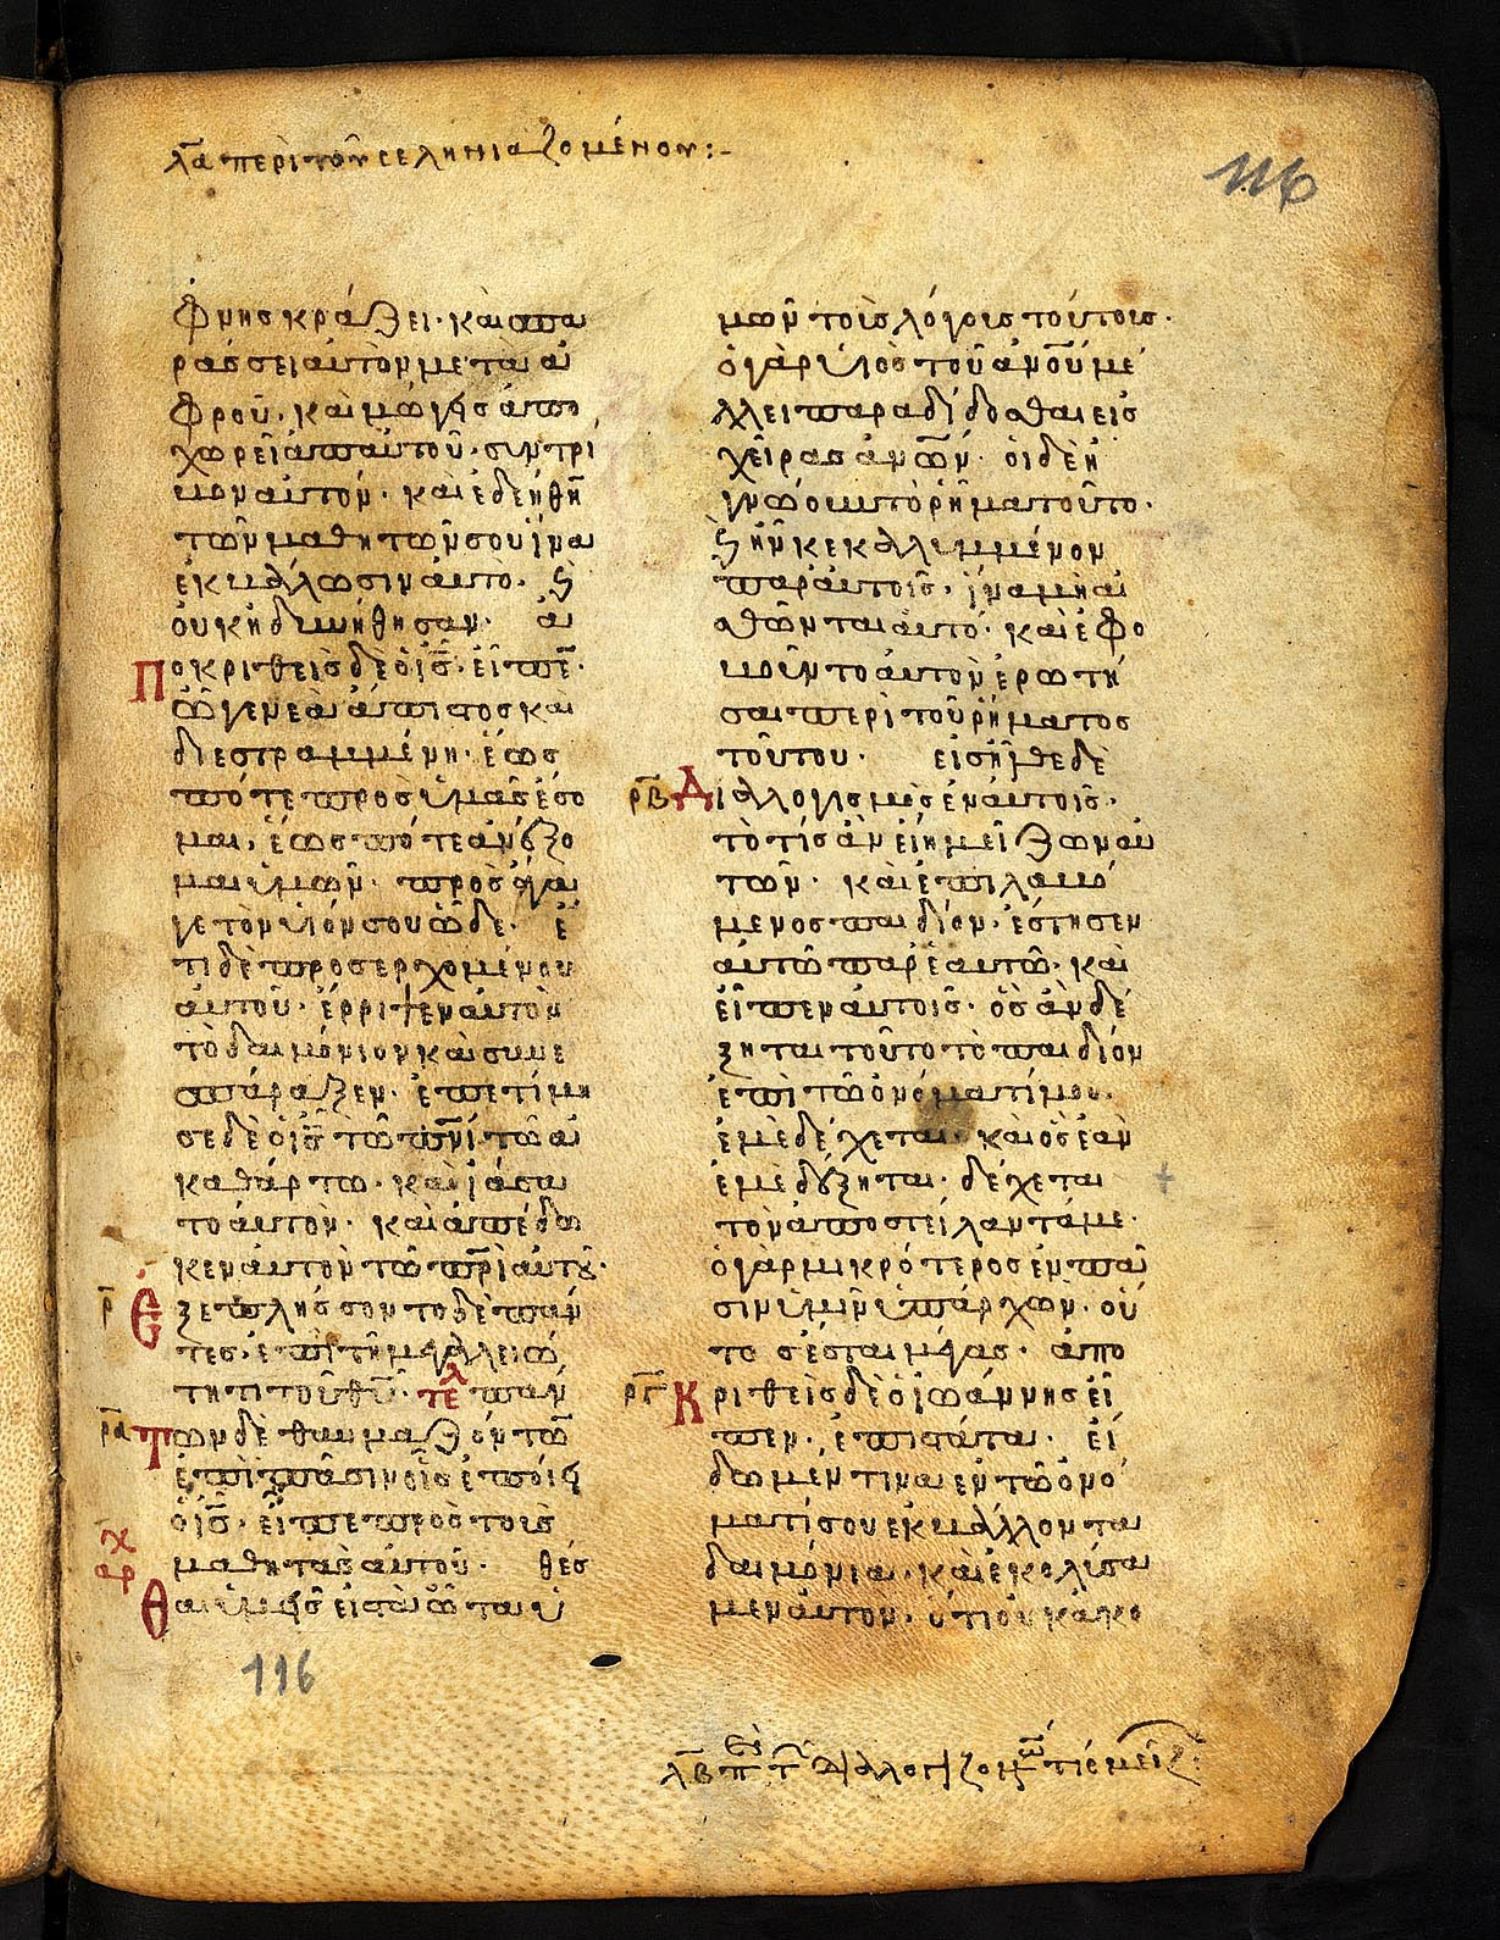 λ̅α̅ περὶ τοῦ σεληνιαζομένου:-
116
φνης κράζει· καὶ σπα
ράσσει αὐτὸν μετὰ ἀ
φροῦ· καὶ μόγις ἀπο
χωρεῖ ἀπ' αὐτοῦ· συντρί
βον αὐτόν· καὶ ἐδεήθη̅
τῶν μαθητῶν σου ἵνα
ἐκβάλωσιν αὐτό· ϗ
οὐκ ἠδυνήθησαν· ἀ
Ποκριθεὶς δὲ ὁ ἰ̅ς̅· εἶπε̅·
ὦ γενεὰ ἄπιστος καὶ
διεστραμμένη· ἕως
πότε πρὸς ὑμᾶς ἔσο
μαι, ἕως πότε ἀνέξο
μαι ὑμῶν· προσάγα
γε τὸν υἱόν σου ὧδε· ἔ
τι δὲ προσερχομένου
αὐτοῦ· ἔρριψεν αὐτὸν
τὸ δαιμόνιον καὶ συνε
σπάραξεν· ἐπετίμη
σε δὲ ὁ ἰ̅ς̅ τῶ π̅ν̅ι̅ τῶ ἀ
καθάρτω· καὶ ἰάσα
το αὐτὸν· καὶ ἀπέδω
κεν αὐτὸν τῶ π̅ρ̅ι̅ αὐτοῦ·
ρ̅ Ἐξεπλήσσοντο δὲ πάν
τες· ἐπὶ τῆ μεγαλειό
τητι τοῦ θ̅υ̅· τελ παν
ρ̅α̅ Των δὲ θαυμαζόντω̅
ἐπὶ πᾶσιν οἷς ἐποίει
ὁ ἰ̅ς̅· εἶπε πρὸς τοὺς
αρχ μαθητὰς αὐτοῦ· θέσ
Θαι ὑμεῖς εἰς τὰ ὦτα ὑ
μῶν τοὺς λόγους τούτους·
ὁ γὰρ υἱὸς τοῦ ἀ̅ν̅ο̅υ̅ μέ
λλει παραδίδοσθαι εἰς
χεῖρας ἀ̅ν̅ω̅ν̅· οἱ δὲ ἠ
γνόουν τὸ ῥῆμα τοῦτο·
ϗ ἦν κεκαλυμμένον
παρ' αὐτοῖς· ἵνα μὴ αἴ
σθωνται αὐτό· καὶ ἐφο
βοῦντο αὐτὸν ἐρωτῆ
σαι περὶ τοῦ ῥήματος
τούτου· εἰσῆλθε δὲ
ρ̅β̅ Διαλογισμὸς ἐν αὐτοῖς·
τὸ τίς ἂν εἴη μείζων αὐ
τῶν· καὶ ἐπιλαβό
μενος παιδίον· ἔστησεν
αὐτῶ παρ' ἑαυτῶ· καὶ
εἶπεν αὐτοῖς· ὃς ἂν δέ
ξηται τοῦτο τὸ παιδίον
ἐπὶ τῶ ὀνόματί μου·
ἐμὲ δέχεται· καὶ ὃς ἐὰν
ἐμὲ δέξηται· δέχεται
τὸν ἀποστείλαντά με·
ὁ γὰρ μικρότερος ἐν πᾶ
σιν ὑμῖν ὑπάρχων· οὗ
τος ἔσται μέγας· ἀπο
ρ̅γ̅ Κριθεὶς δὲ ὁ ἰωάννης εἶ
πεν· ἐπιστάτα· εἴ
δωμέν τινα ἐν τῶ ὀνό
ματί σου ἐκβάλλοντα
δαιμόνια· καὶ ἐκωλύσα
μεν αὐτον· ὅτι οὐκ ἀκο
116
λ̅β̅ π τ διαλογιζομ τίς μείζ: